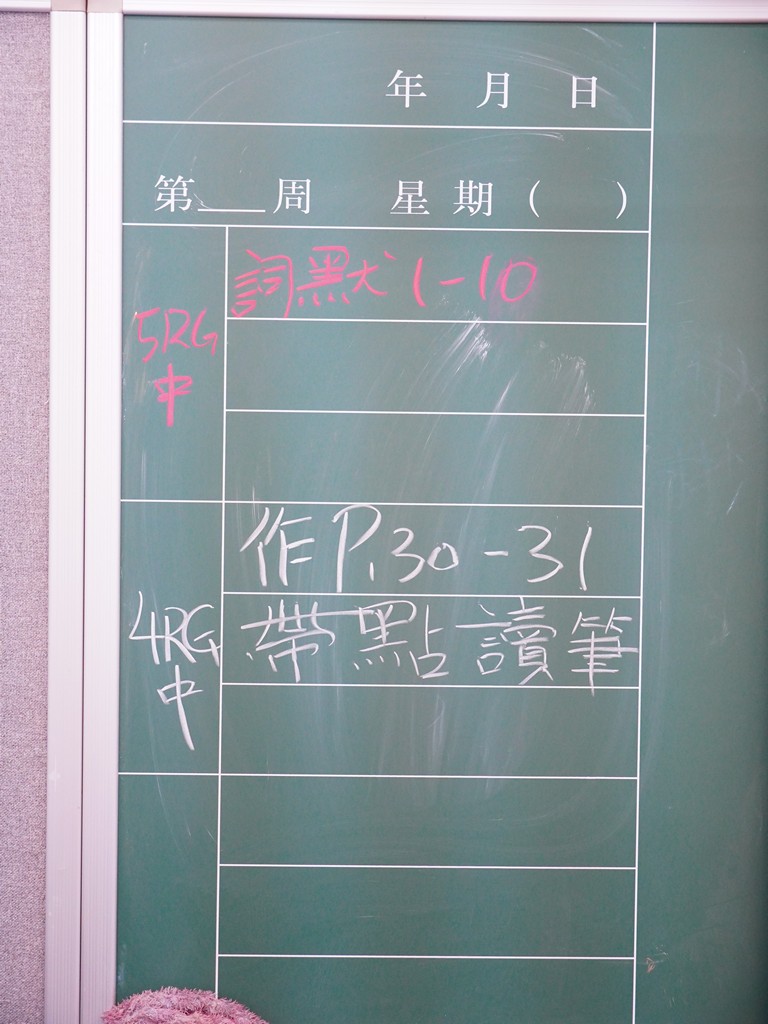 年 月 日
第___周 星期( )
5RG
中
詞默 1-10
4RG
中
作P.30-31
帶點讀筆